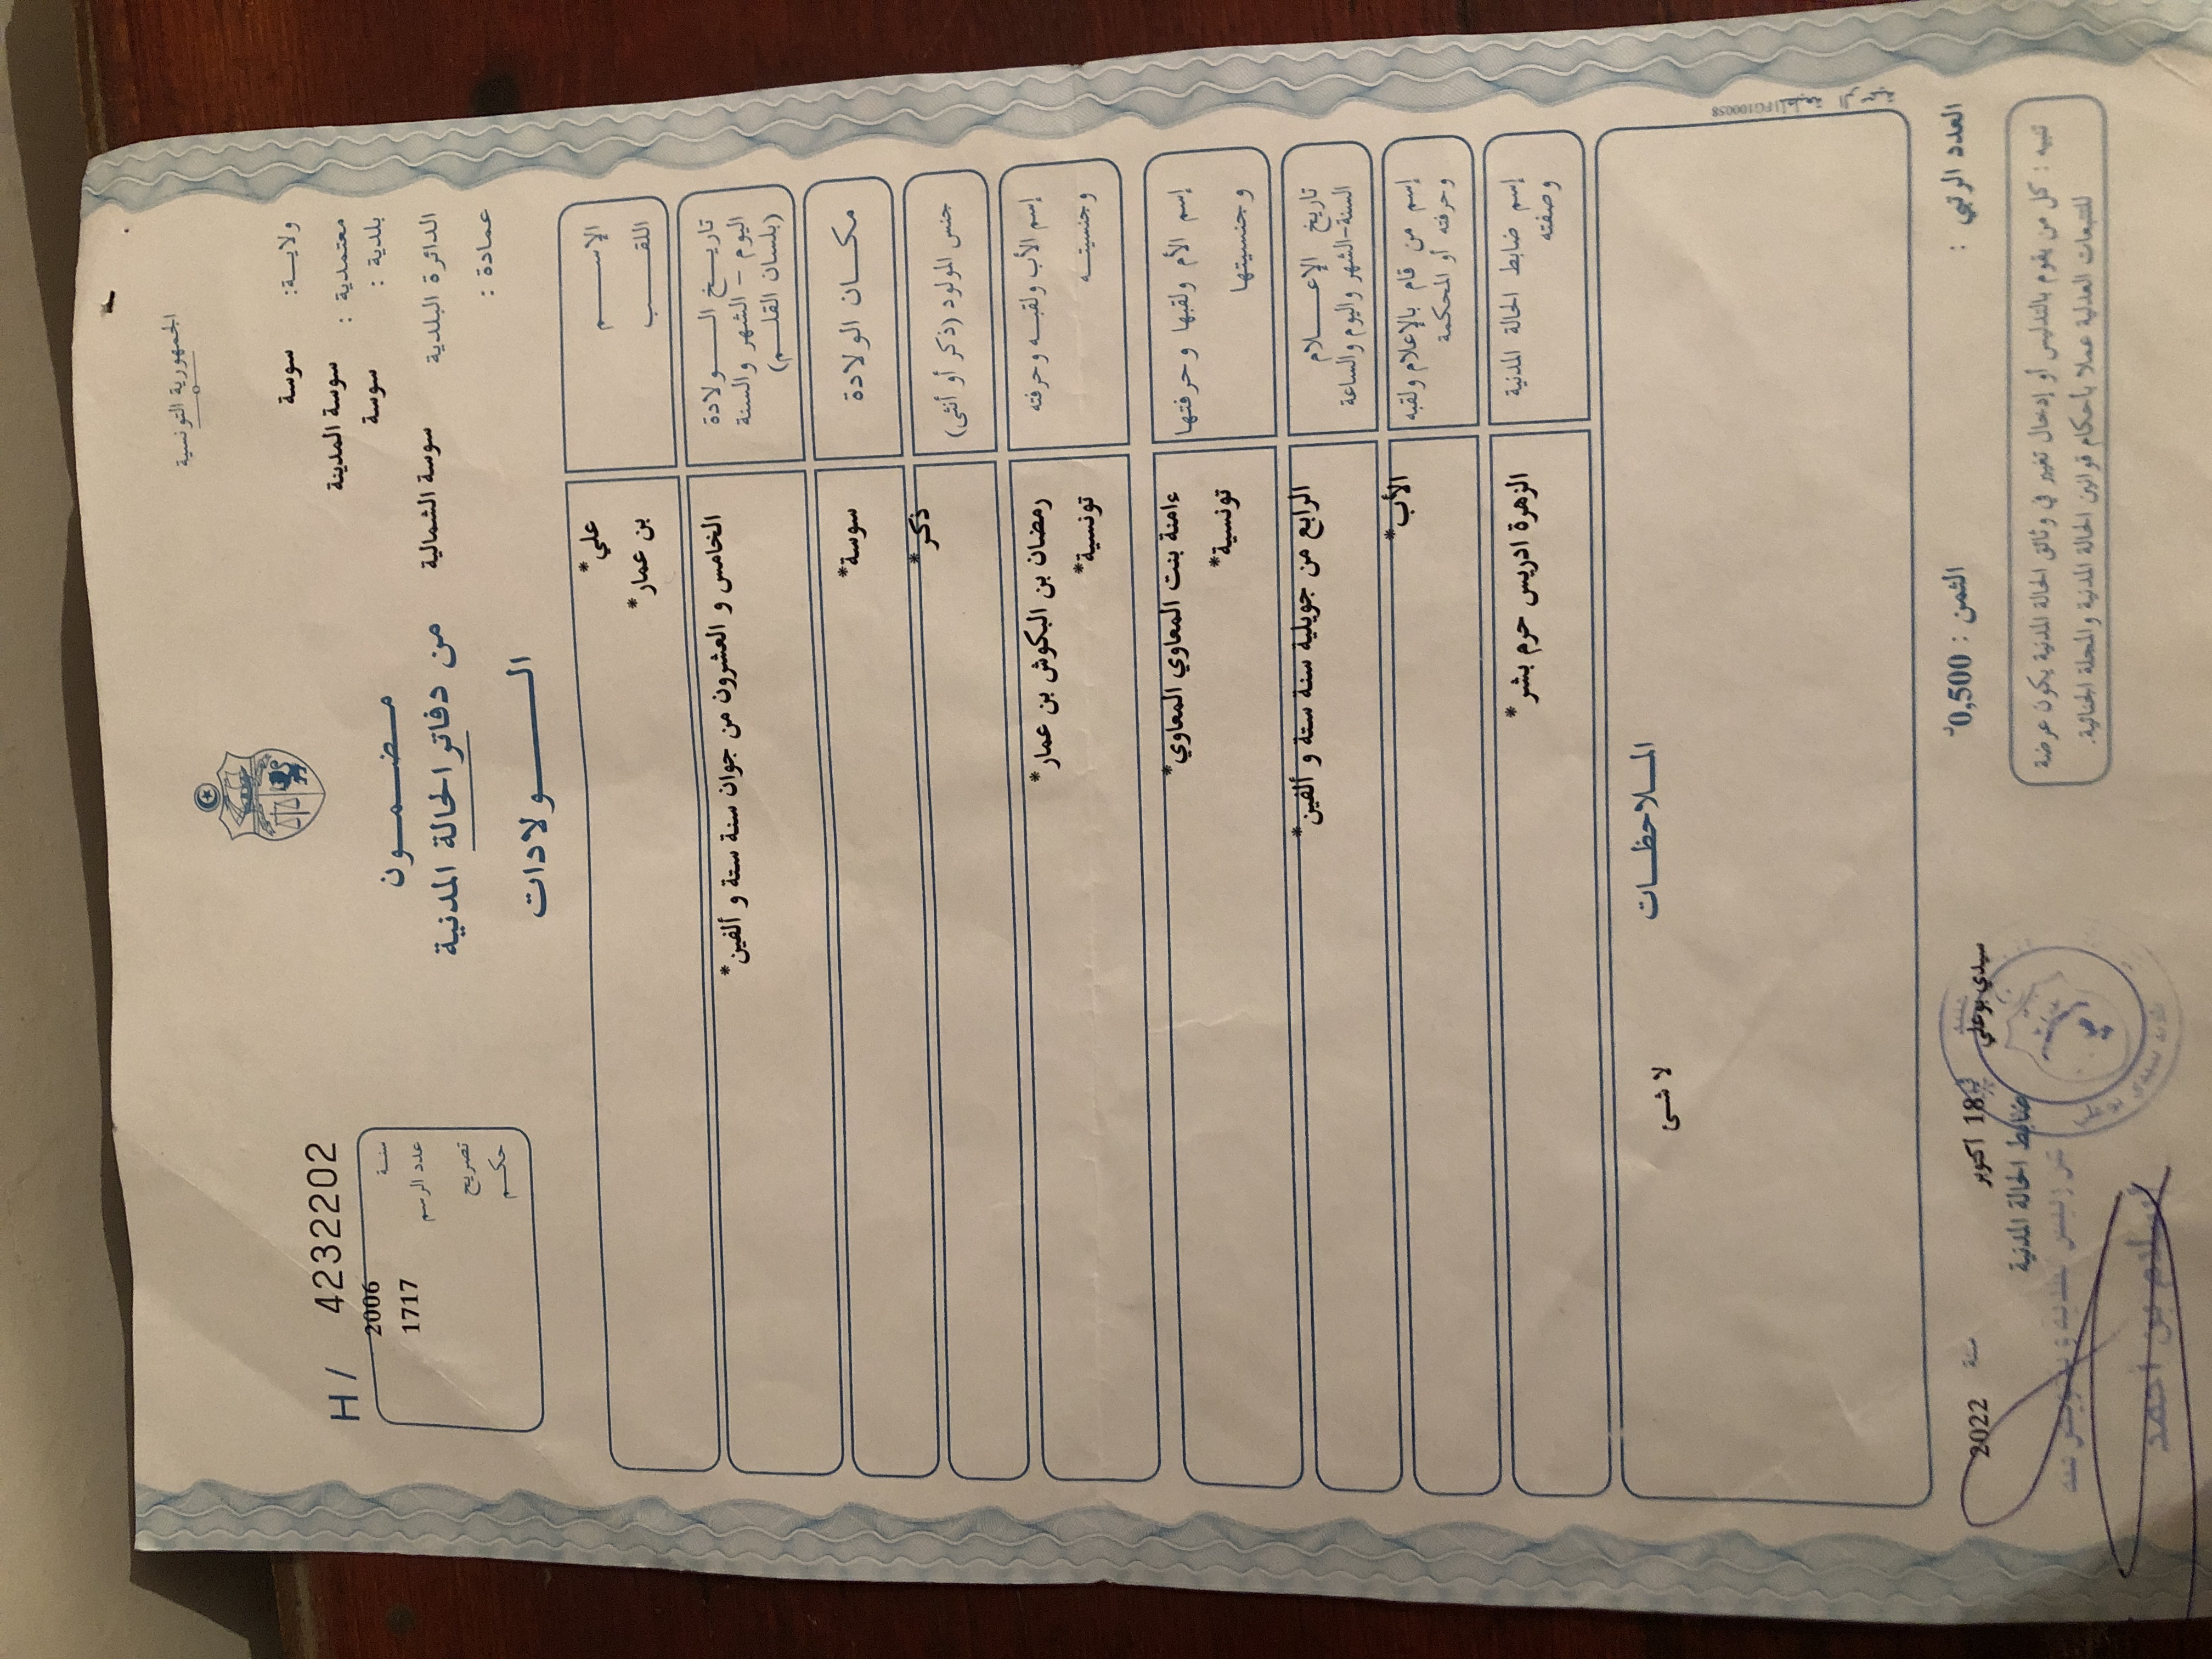 الجمهورية التونسية
ولايـة: سوسة
معتمدية : سوسة المدينة
بلدية : سوسة
الدائرة البلدية سوسة الشمالية
عمادة :
مـضـمـون
من دفاتر الحالة المدنية
الـــولادات
H/ 4232202
سنـة 2006
عدد الرسم 1717
تصريح
حكـم
الإســـم علي*
اللقـــب بن عمار*
تاريـخ الـــولادة الخامس و العشرون من جوان سنة ستة و ألفين*
اليوم - الشهر والسنة
(بلسان القلـم)
مكـــان الولادة سوسة*
جنس المولود (ذكر أو أنثى) ذكر*
إسم الأب ولقبـه وحرفته رمضان بن البكوش بن عمار*
وجنسيتـه تونسية*
إسم الأم ولقبها وحرفتها ءامنة بنت المعاوي المعاوي*
وجنسيتها تونسية*
تاريخ الإعـــلام الرابع من جويلية سنة ستة و ألفين*
السنة-الشهر واليوم والساعة
إسم من قام بالإعلام ولقبه الأب*
وحرفته أو المحكمة
إسم ضابط الحالة المدنية الزهرة ادريس حرم بشر*
وصفته
الملاحظـات
لا شئ
PG100058
العدد الرتبي :
الثمن : 0,500د
سيدي بوعلي في 18 اكتوبر سنة 2022
ضابط الحالة المدنية
تنبيه : كل من يقوم بالتدليس أو إدخال تغيير في وثائق الحالة المدنية يكون عرضة
للتتبعات العدلية عملا بأحكام قوانين الحالة المدنية والمجلة الجنائية.